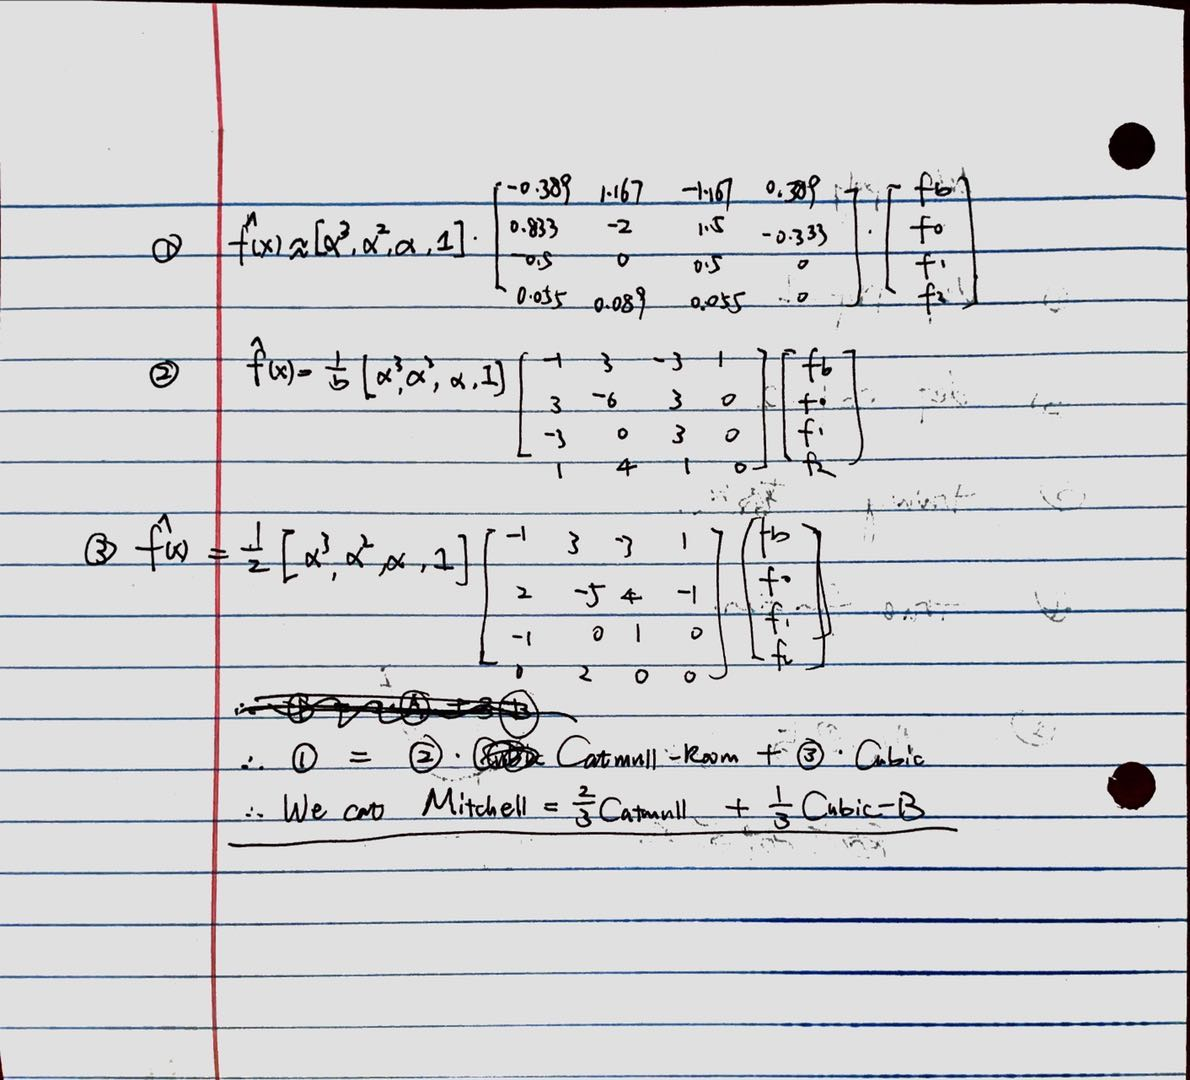 ① f̂(x) ≈ [α³, α², α, 1] · [-0.389 1.167 -1.167 0.389 ; 0.833 -2 1.5 -0.333 ; -0.5 0 0.5 0 ; 0.055 0.089 0.055 0] · [fb f0 f1 f2]
② f̂(x) = 1/6 [α³, α², α, 1] [-1 3 -3 1 ; 3 -6 3 0 ; -3 0 3 0 ; 1 4 1 0] [fb f0 f1 f2]
③ f̂(x) = 1/2 [α³, α², α, 1] [-1 3 -3 1 ; 2 -5 4 -1 ; -1 0 1 0 ; 0 2 0 0] [fb f0 f1 f2]
∴ ① = ② · Catmull-Room + ③ · Cubic
∴ We Mitchell = 2/3 Catmull + 1/3 Cubic-B